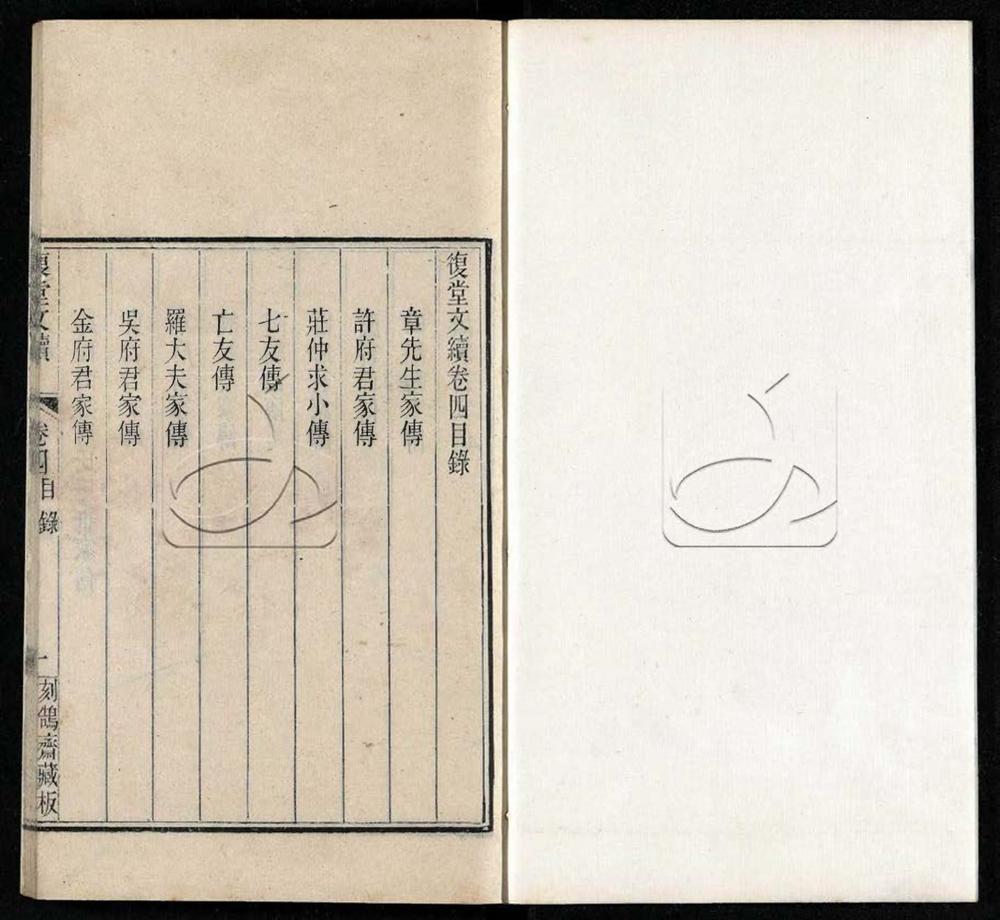 復堂文續卷四目錄
章先生家傳
許府君家傳
莊仲求小傳
七友傳
亡友傳
羅大夫家傳
吳府君家傳
金府君家傳
復堂文續 卷四目錄 一 刻鵠齋藏板